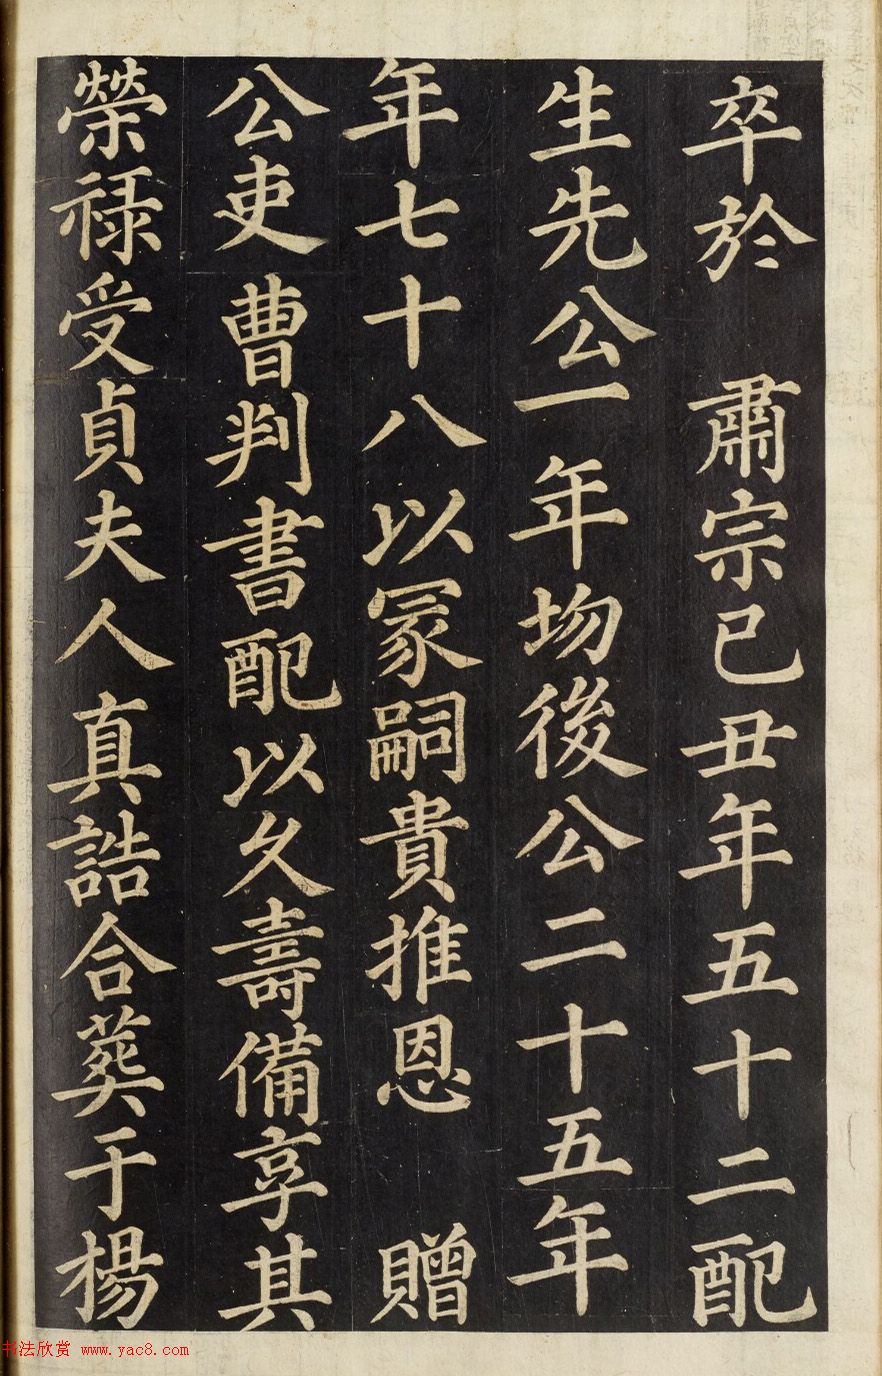 卒於 肅宗己丑年五十二配
生先公一年歾後公二十五年
年七十八以冡嗣貴推恩 贈
公吏曹判書配以久壽備享其
榮祿受貞夫人真誥合葬于楊
书法欣赏 www.yac8.com